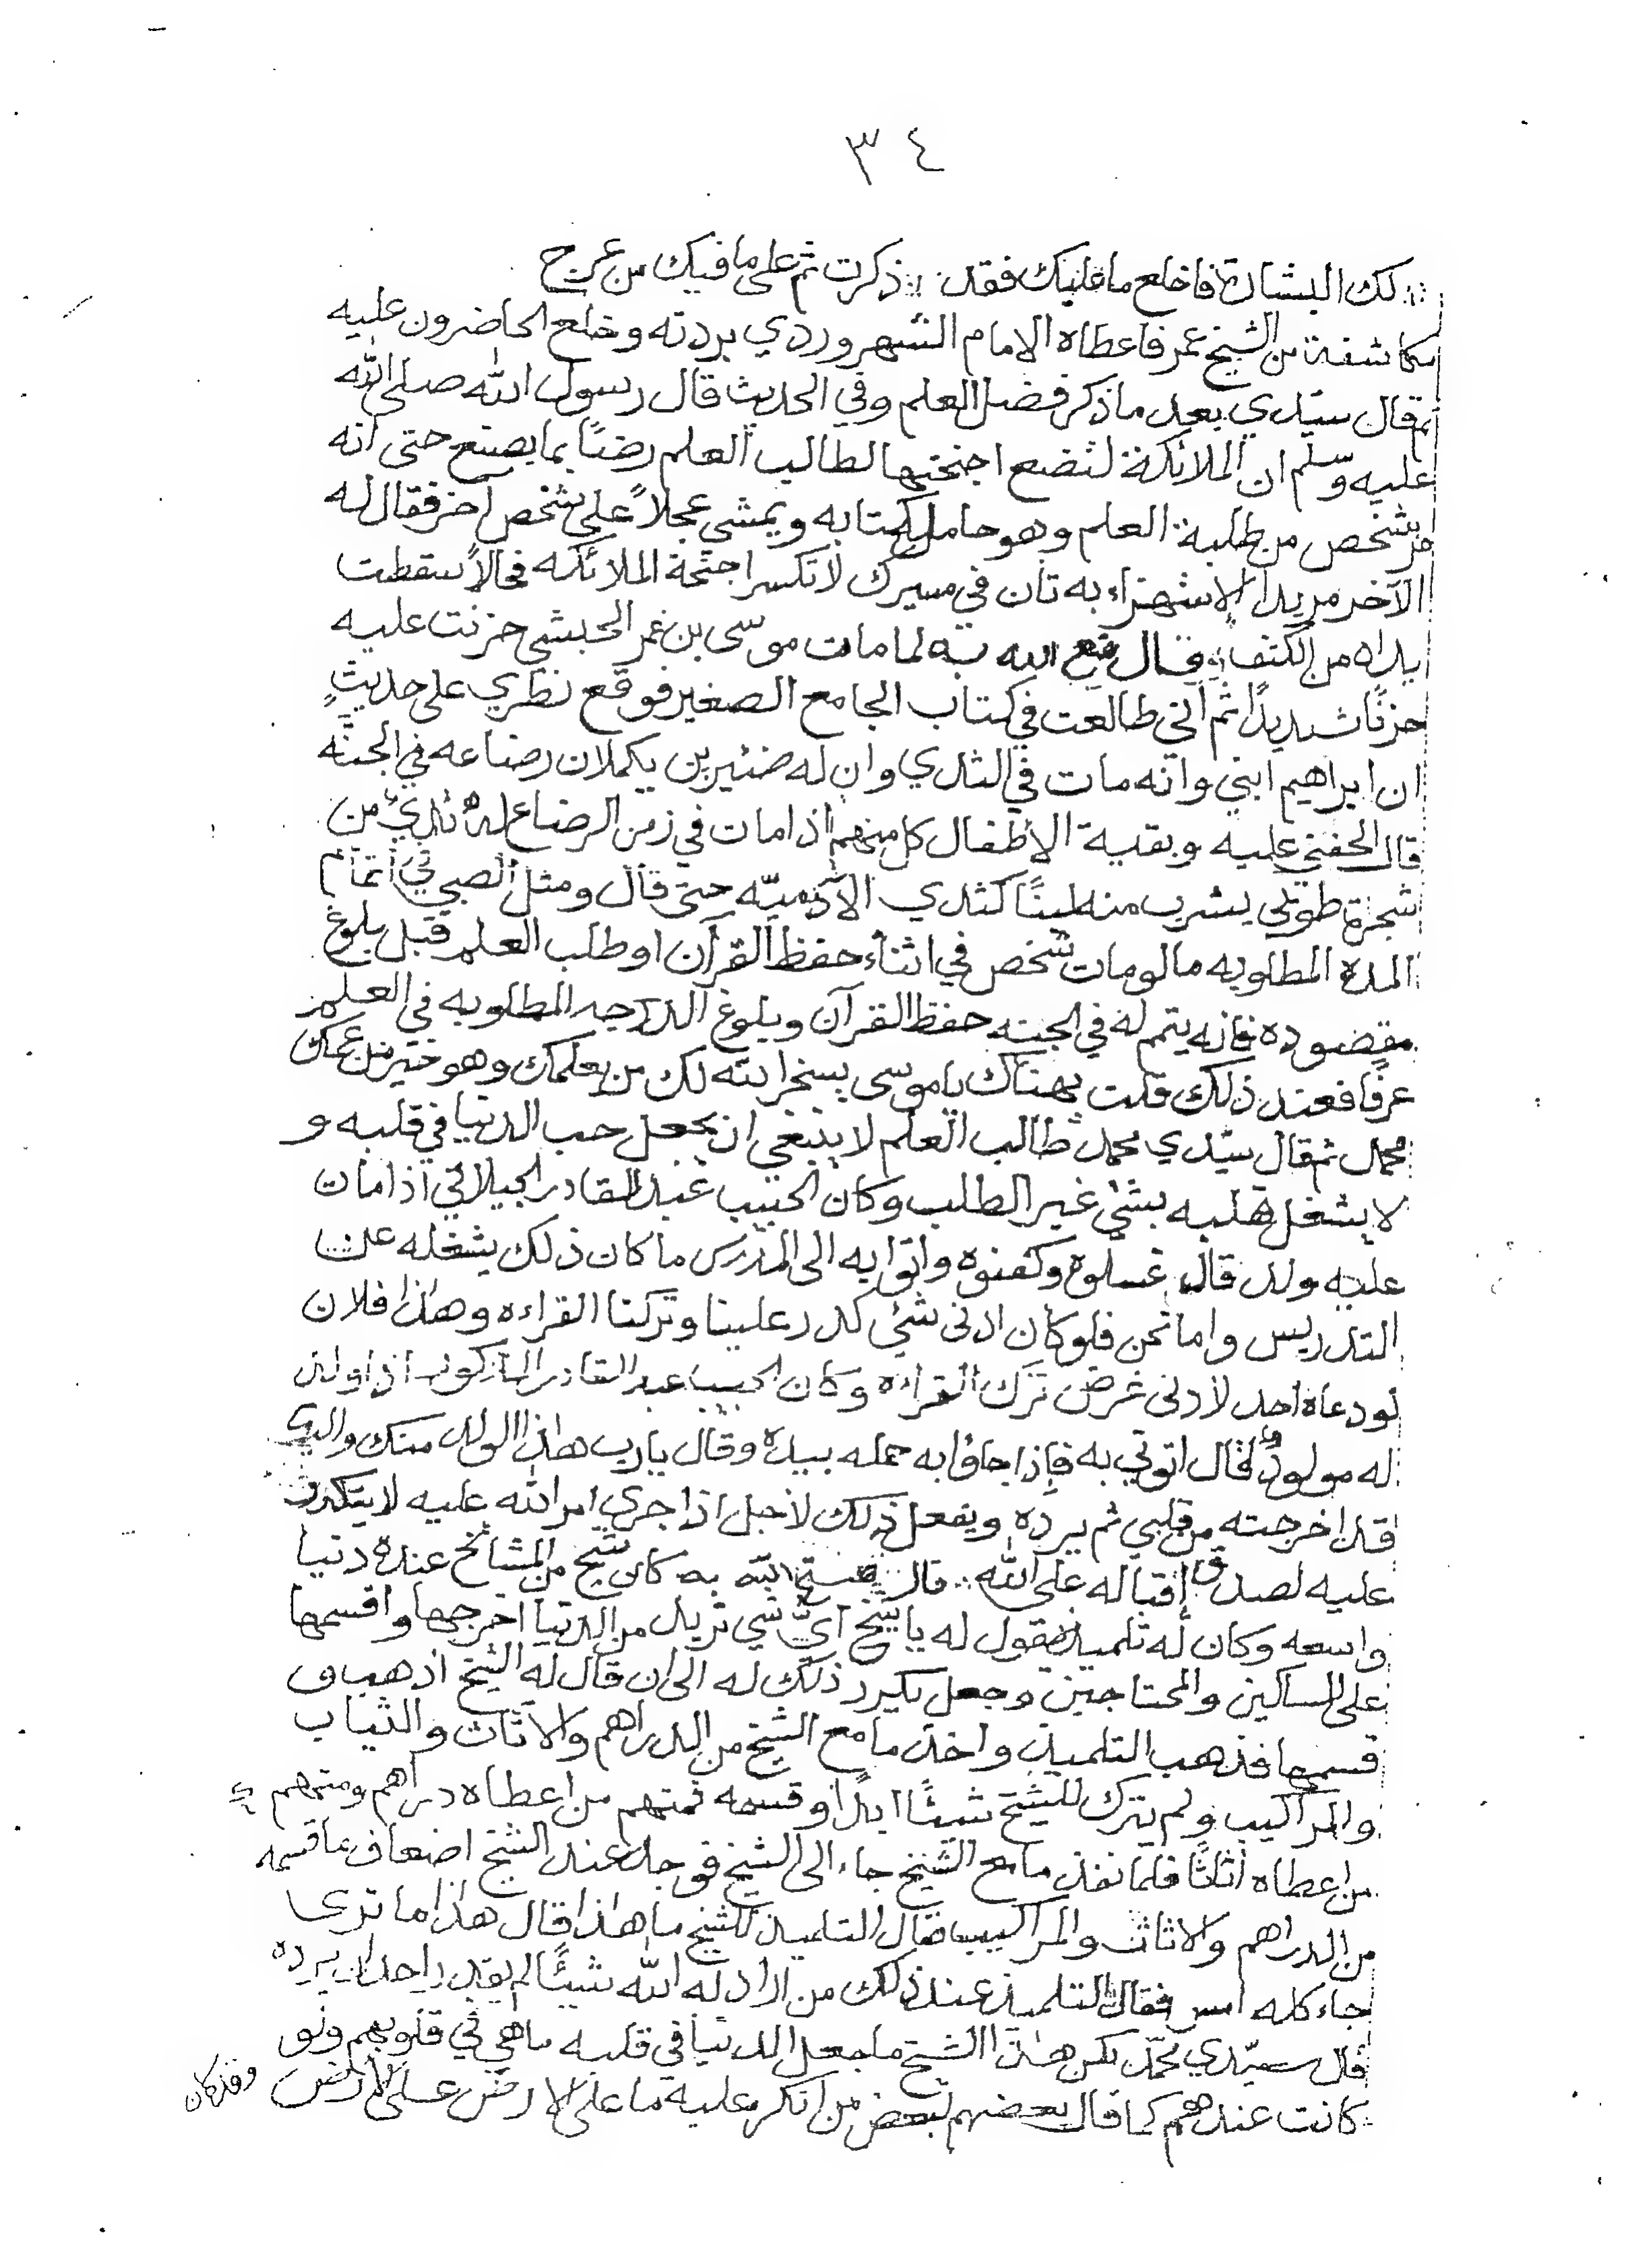 ٣٤
لك البشارة فاخلع ما عليك فقد :: ذكرت ثم على ما فيك من عوج
مكاشفة من الشيخ عمر فاعطاه الامام الشهروردي بردته وخلع الحاضرون عليه
ثم قال سيّدي بعد ما ذكر فضل العلم وفي الحديث قال رسول الله صلى الله
عليه وسلم ان الملائكة لتضع اجنحتها لطالب العلم رضًا بما يصنع حتى انه
مر شخص من طلبة العلم وهو حامل كتابه ويمشي عجلاً على شخص آخر فقال له
الآخر مريدا الاستهزاء به تان في مسيرك لا تكسر اجنحة الملائكه فحالاً سقطت
يداه من الكتف :: وقال متع الله به لما مات موسى بن عمر الحبشي حزنت عليه
حزنًا شديدًا ثم اني طالعت في كتاب الجامع الصغير فوقع نظري على حديثٍ
ان ابراهيم ابني وانه مات في الثدي وان له ضئيرين يكملان رضاعه في الجنّه
قال الحفني عليه وبقية الاطفال كل منهم اذا مات في زمن الرضاع له ثدي من
شجرة طوبى يشرب منه لبنًا كثدي الآدميّه حتى قال ومثل الصبي في اتمام
المدة المطلوبه ما لو مات شخص في اثناء حفظ القرآن او طلب العلم قبل بلوغ
مقصوده فانه يتم له في الجنه حفظ القرآن وبلوغ الدرجه المطلوبه في العلم
عرفًا فعند ذلك قلت يهناك يا موسى يسخر الله لك من يعلمك وهو خير من عمك
محمد ثم قال سيّدي محمد طالب العلم لا ينبغي ان يجعل حب الدنيا في قلبه و
لا يشغل قلبه بشيءٍ غير الطلب وكان الحبيب عبد القادر الجيلاني اذا مات
عليه ولد قال غسلوه وكفنوه واتوا به الى المدرس ما كان ذلك يشغله عن
التدريس واما نحن فلو كان ادنى شيء كدر علينا وتركنا القراءه وهذا فلان
لو دعاه احد لادنى غرض ترك القراءه وكان الحبيب عبد القادر المذكور اذا ولد
له مولودٌ قال اتوني به فإذا جاؤا به حمله بيده وقال يارب هذا الولد منك واليك
قد اخرجته من قلبي ثم يرده ويفعل ذلك لاجل اذا جرى امر الله عليه لا يتكدر
عليه لصدق إقباله على الله :: قال متع الله به كان شيخ من المشائخ عنده دنيا
واسعه وكان له تلميذ يقول له يا شيخ ايّ شي تريد من الدنيا اخرجها واقسمها
على المساكين والمحتاجين وجعل يكرر ذلك له الى ان قال له الشيخ اذهب و
قسمها فذهب التلميذ واخذ ما مع الشيخ من الدراهم والاثاث والثياب
والمراكيب ولم يترك للشيخ شيئًا ابدًا وقسمه فمنهم من اعطاه دراهم ومنهم
من اعطاه اثاثًا فلما نفذ ما مع الشيخ جاء الى الشيخ فوجد عند الشيخ اضعاف ما قسمه
من الدراهم والاثاث والمراكيب فقال التلميذ للشيخ ما هذا قال هذا ما ترى
جاء كله امس فقال التلميذ عند ذلك من اراد له الله شيئًا لم يقدر احد ان يرده
قال سيّدي محمّد لكن هذا الشيخ ما جعل الدنيا في قلبه ما هي في قلوبهم ولو
كانت عندهم كما قال بعضهم لبعض من انكر عليه ما على الارض على الارض
وقد كان